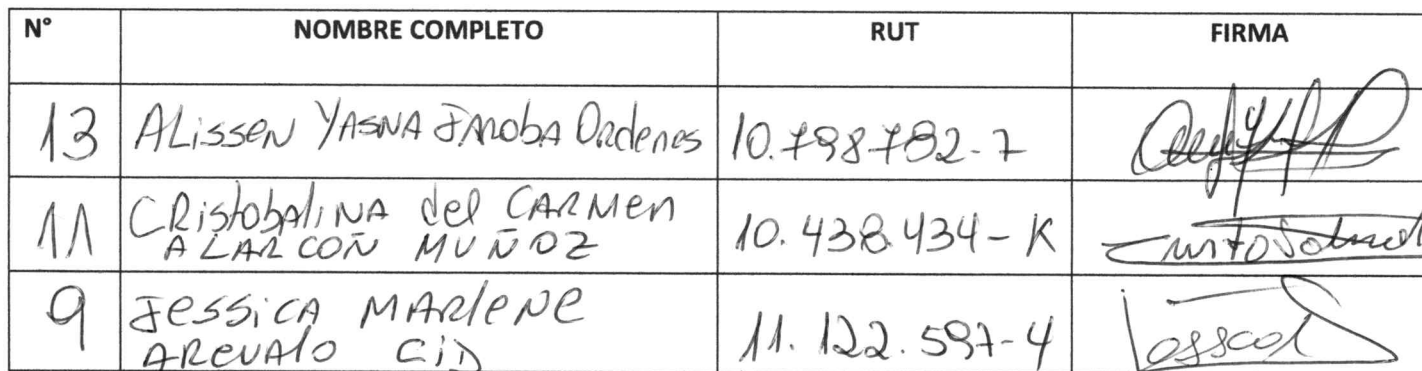 N° NOMBRE COMPLETO RUT FIRMA
13 ALissen YASNA Ordenes 10.798.782-7
11 CRistobaliNA del CARMen
ALARCON MUÑOZ 10.438.434-K
9 JessicA MARleNe
AReVAlo CiD 11.122.597-4